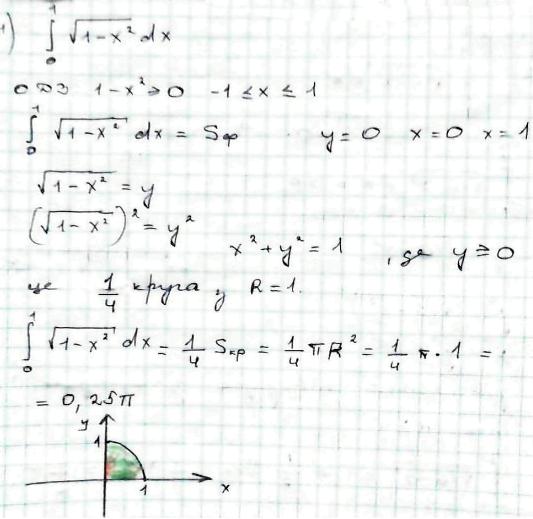 1) ∫₀¹ √(1-x²) dx
ОДЗ 1-x² ≥ 0 -1 ≤ x ≤ 1
∫₀¹ √(1-x²) dx = Sф y = 0 x = 0 x = 1
√(1-x²) = y
(√(1-x²))² = y²
x² + y² = 1 , де y ≥ 0
це 1/4 круга у R = 1.
∫₀¹ √(1-x²) dx = 1/4 Sкр = 1/4 πR² = 1/4 π · 1 =
= 0,25π
y
1
1 x